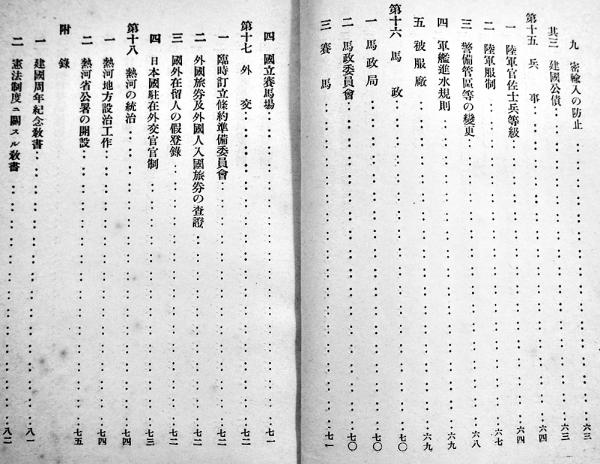 九 密輸入の防止 六三
其三 建國公債 六三
第十五 兵事 六四
一 陸軍官佐士兵等級 六四
二 陸軍服制 六七
三 警備管區等の變更 六八
四 軍艦進水規則 六九
五 被服廠 六九
第十六 馬政 七〇
一 馬政局 七〇
二 馬政委員會 七〇
三 賽馬 七一
四 國立賽馬場 七一
第十七 外交 七二
一 臨時訂立條約準備委員會 七二
二 外國旅券及外國人入國旅券の査證 七二
三 國外在留人の假登錄 七二
四 日本國駐在外交官官制 七三
第十八 熱河の統治 七四
一 熱河地方設治工作 七四
二 熱河省公署の開設 七五
附錄
一 建國周年紀念敎書 八一
二 憲法制度ニ關スル敎書 八二